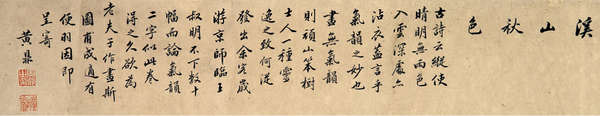 溪山秋色
古詩云縱使
晴明無雨色
入雲深處亦
沾衣蓋言乎
氣韻之妙也
畫無氣韻
則頑山笨樹
士人一種靈
逸之致何從
發出余客歲
游京師臨王
叔明不下數十
幅而論氣韻
二字似此卷
得之久欲為
老夫子作畫斯
圖甫成適有
便羽因即
呈寄
黃鼎